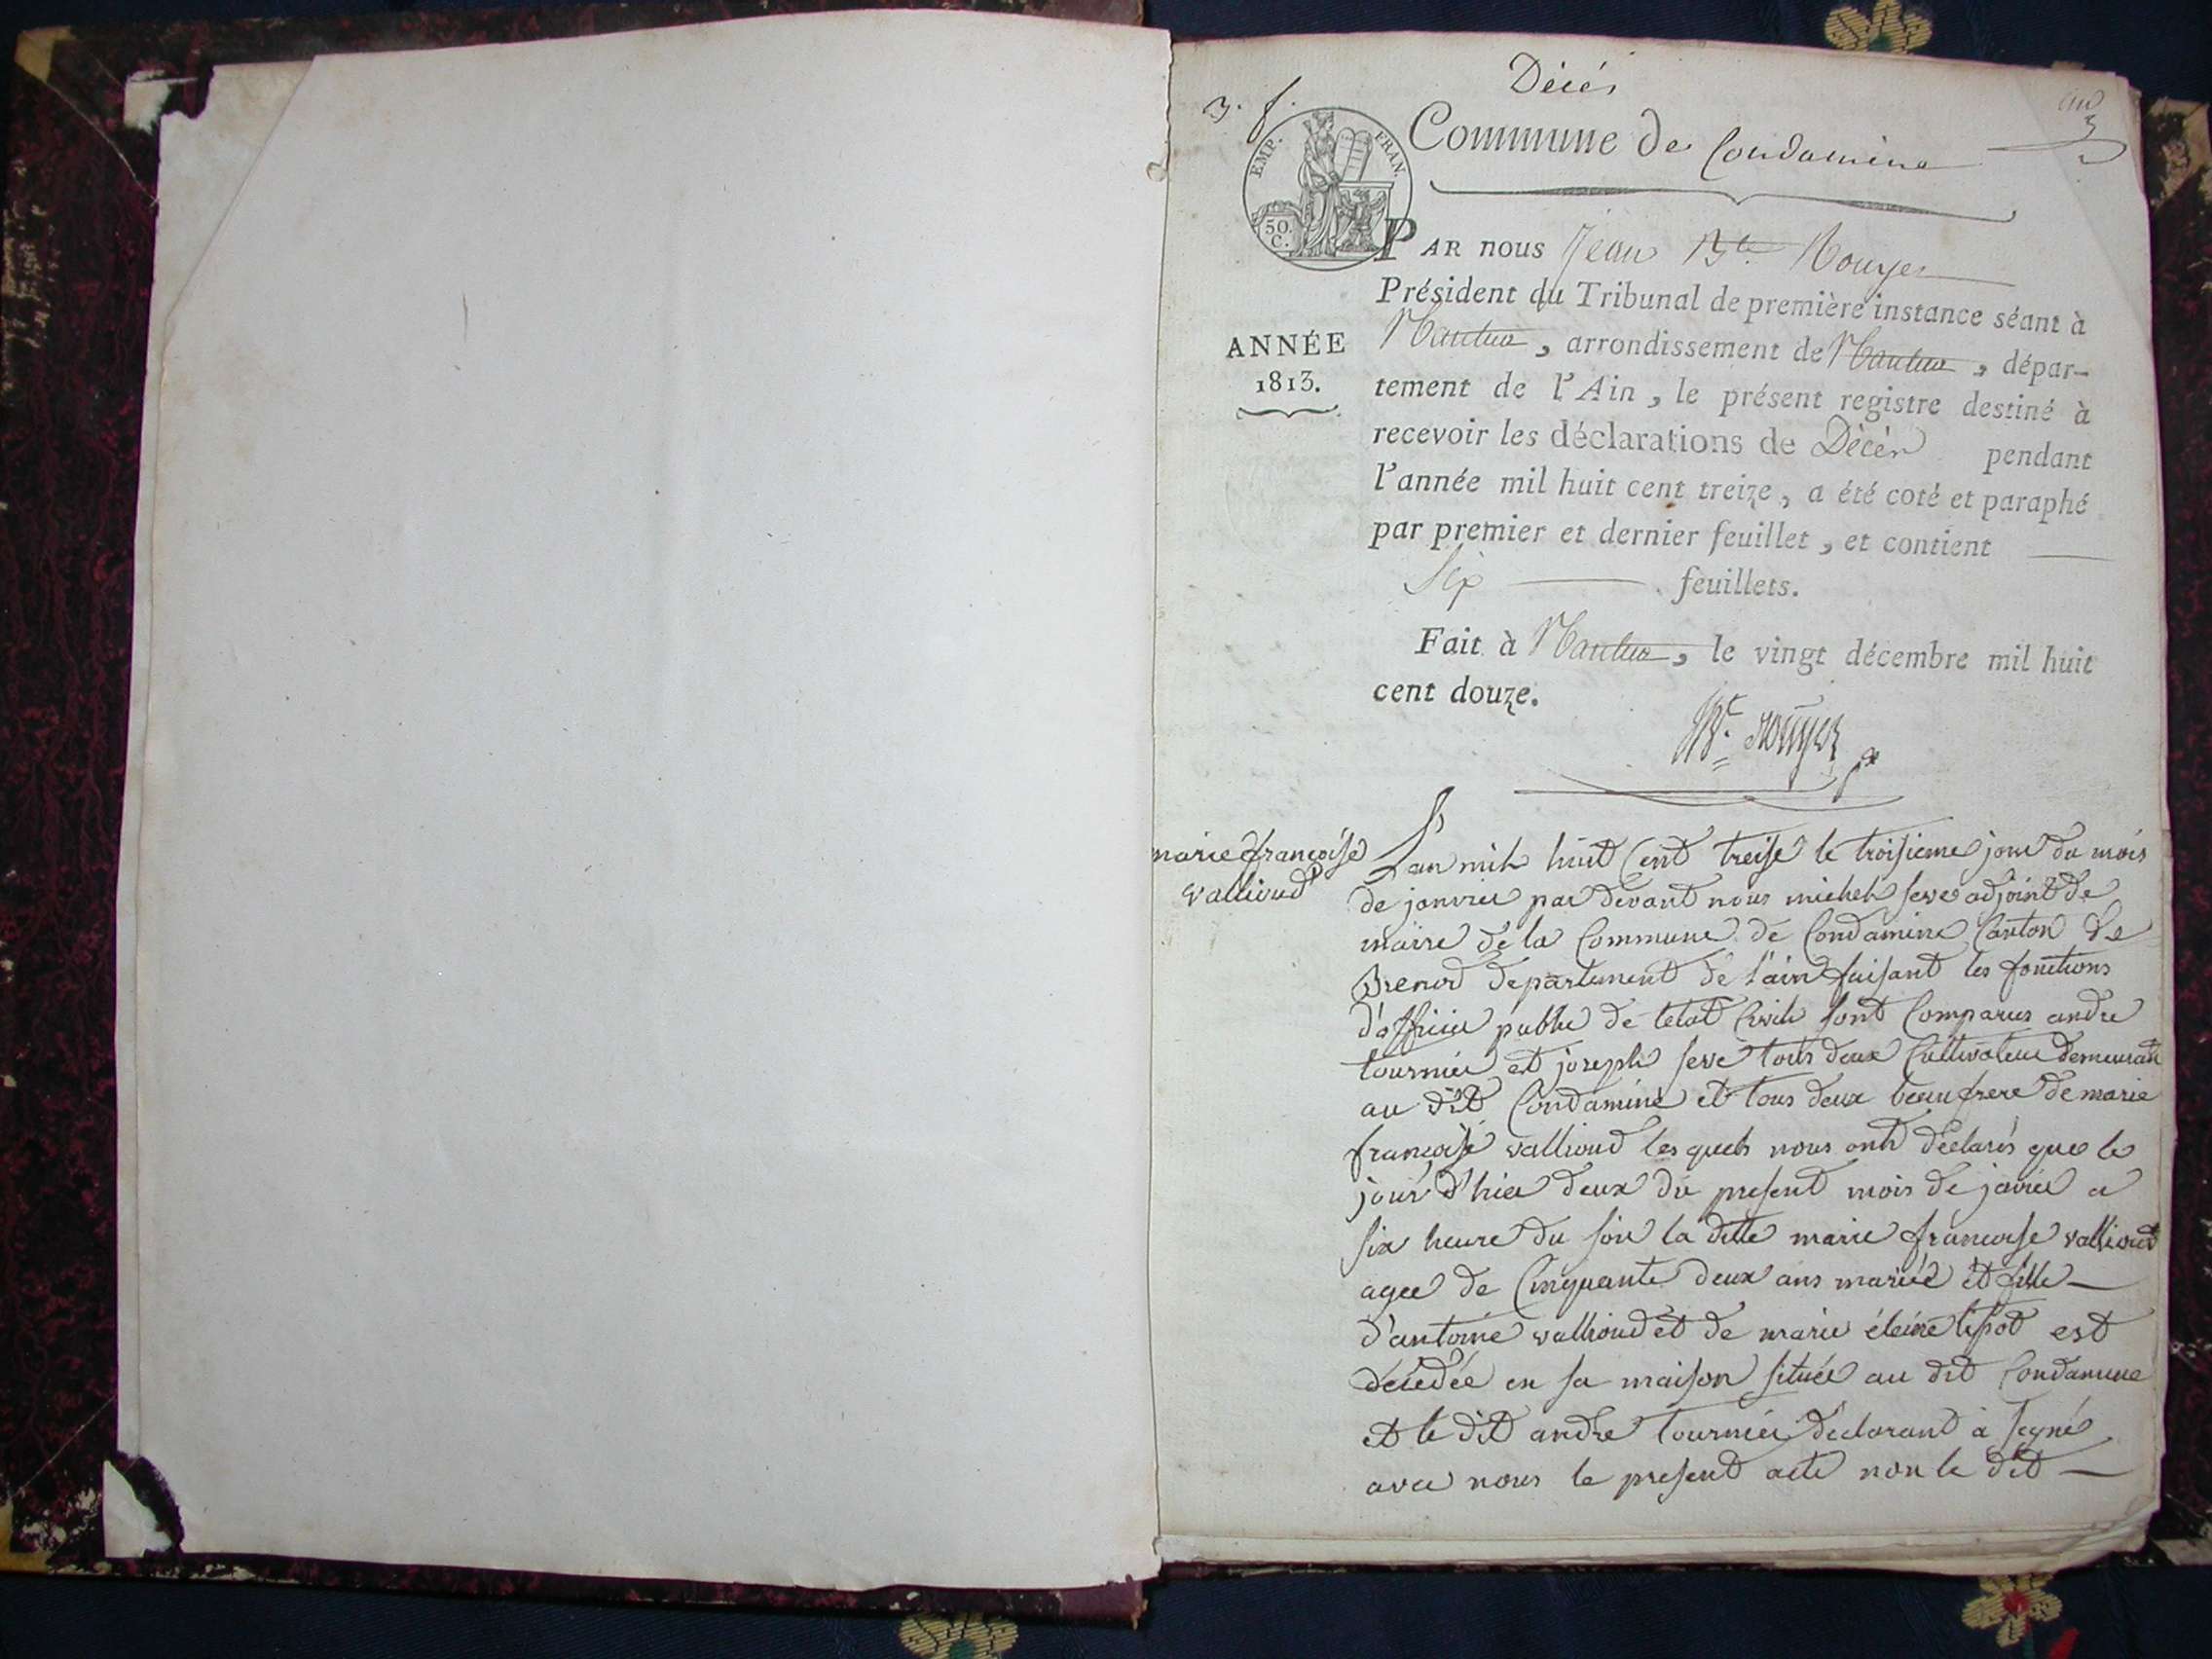 Décés
3. f.
Commune de Condamine
EMP. FRAN.
50. C.
PAR nous Jean Bte Rouyer
Président du Tribunal de première instance séant à
Nantua, arrondissement de Nantua, dépar-
ANNÉE
1813.
tement de l'Ain, le présent registre destiné à
recevoir les déclarations de Décès pendant
l'année mil huit cent treize, a été coté et paraphé
par premier et dernier feuillet, et contient
Six feuillets.
Fait à Nantua, le vingt décembre mil huit
cent douze.
Bte Rouyer
marie françoise
vallioud
L'an mil huit Cent treise le troisieme jour du mois
de janvier par devant nous michel seve adjoint de
maire de la Commune de Condamine Canton de
Brenod departement de l'ain faisant les fonctions
d'officier public de letat Civile sont Comparus andre
tournier et joseph seve touts deux Cultivateur demeurant
au dit Condamine et tous deux beaufrere de marie
françoise vallioud les quels nous ont déclarés que le
jour d'hier deux du present mois de javier a
six heure du soir la ditte marie francoise vallioud
agee de Cinquante deux ans mariée et fille
d'antoine vallioud et de marie éleine lipot est
décédée en sa maison située au dit Condamine
et le dit andre tournier declarant à segné
avec nous le present acte non le dit